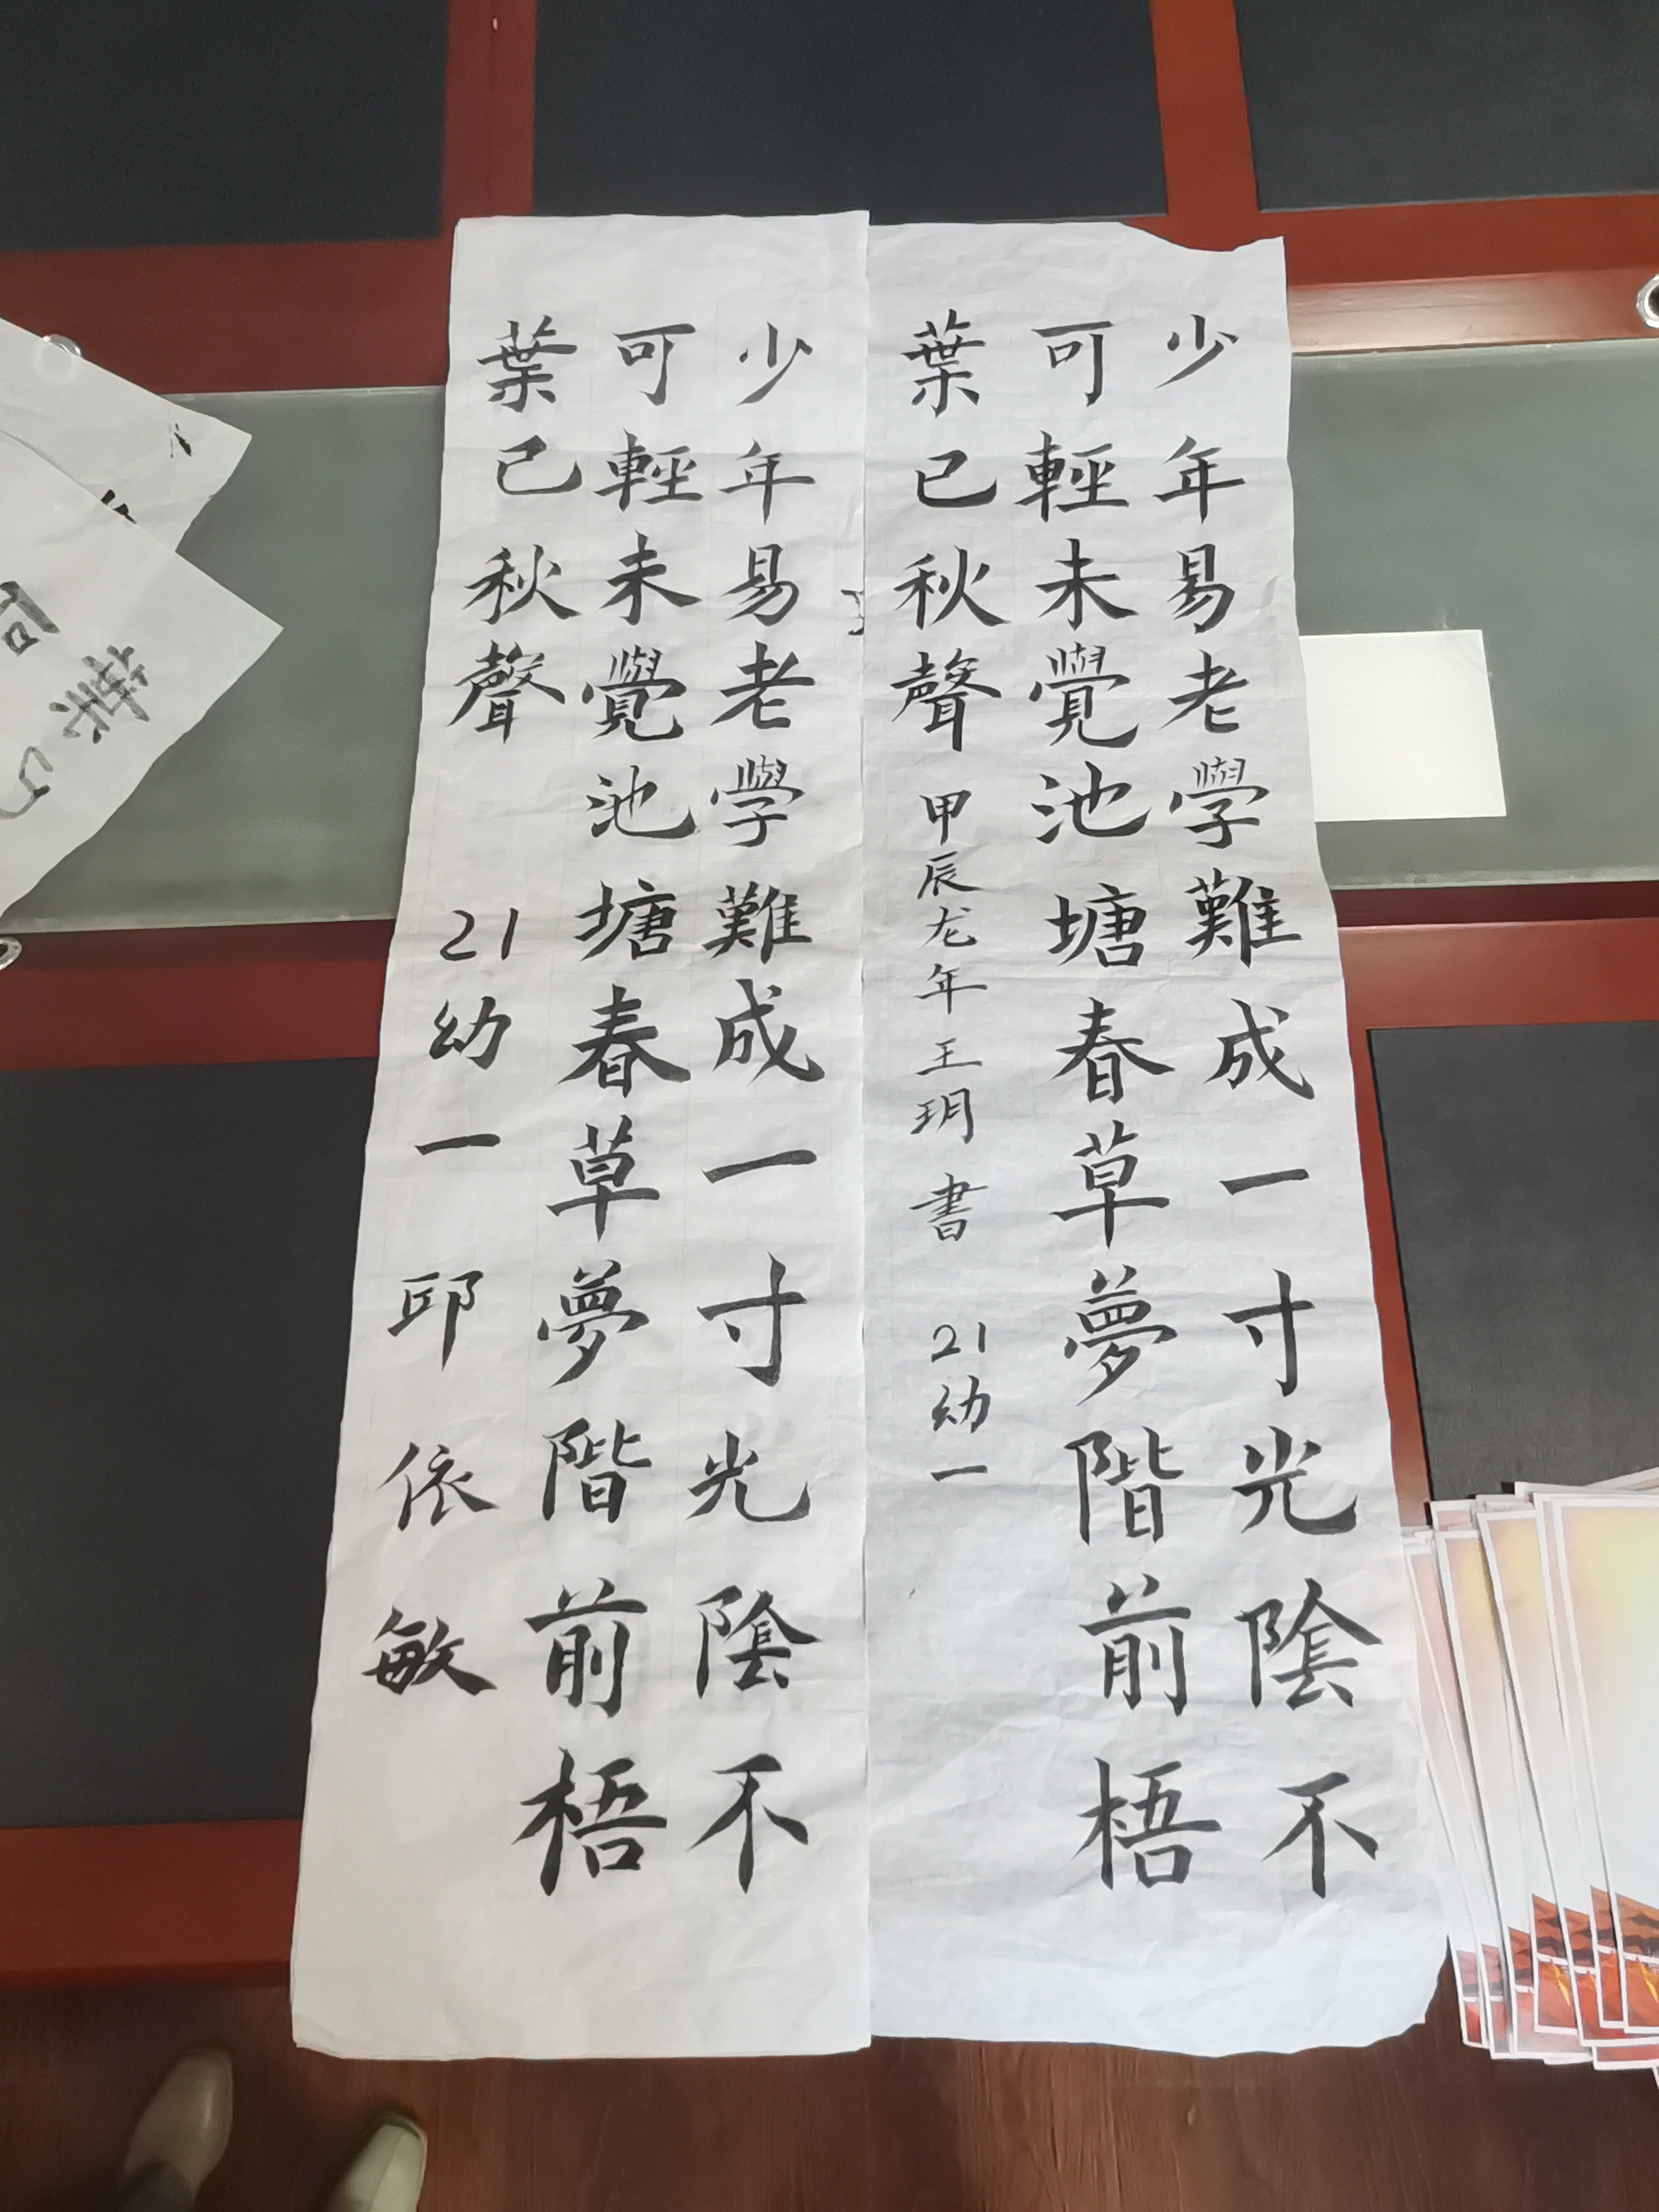 少年易老學難成一寸光陰不
可輕未覺池塘春草夢階前梧
葉已秋聲 甲辰龙年 王玥 書 21幼一
少年易老學難成一寸光陰不
可輕未覺池塘春草夢階前梧
葉已秋聲 21幼一 邱依敏